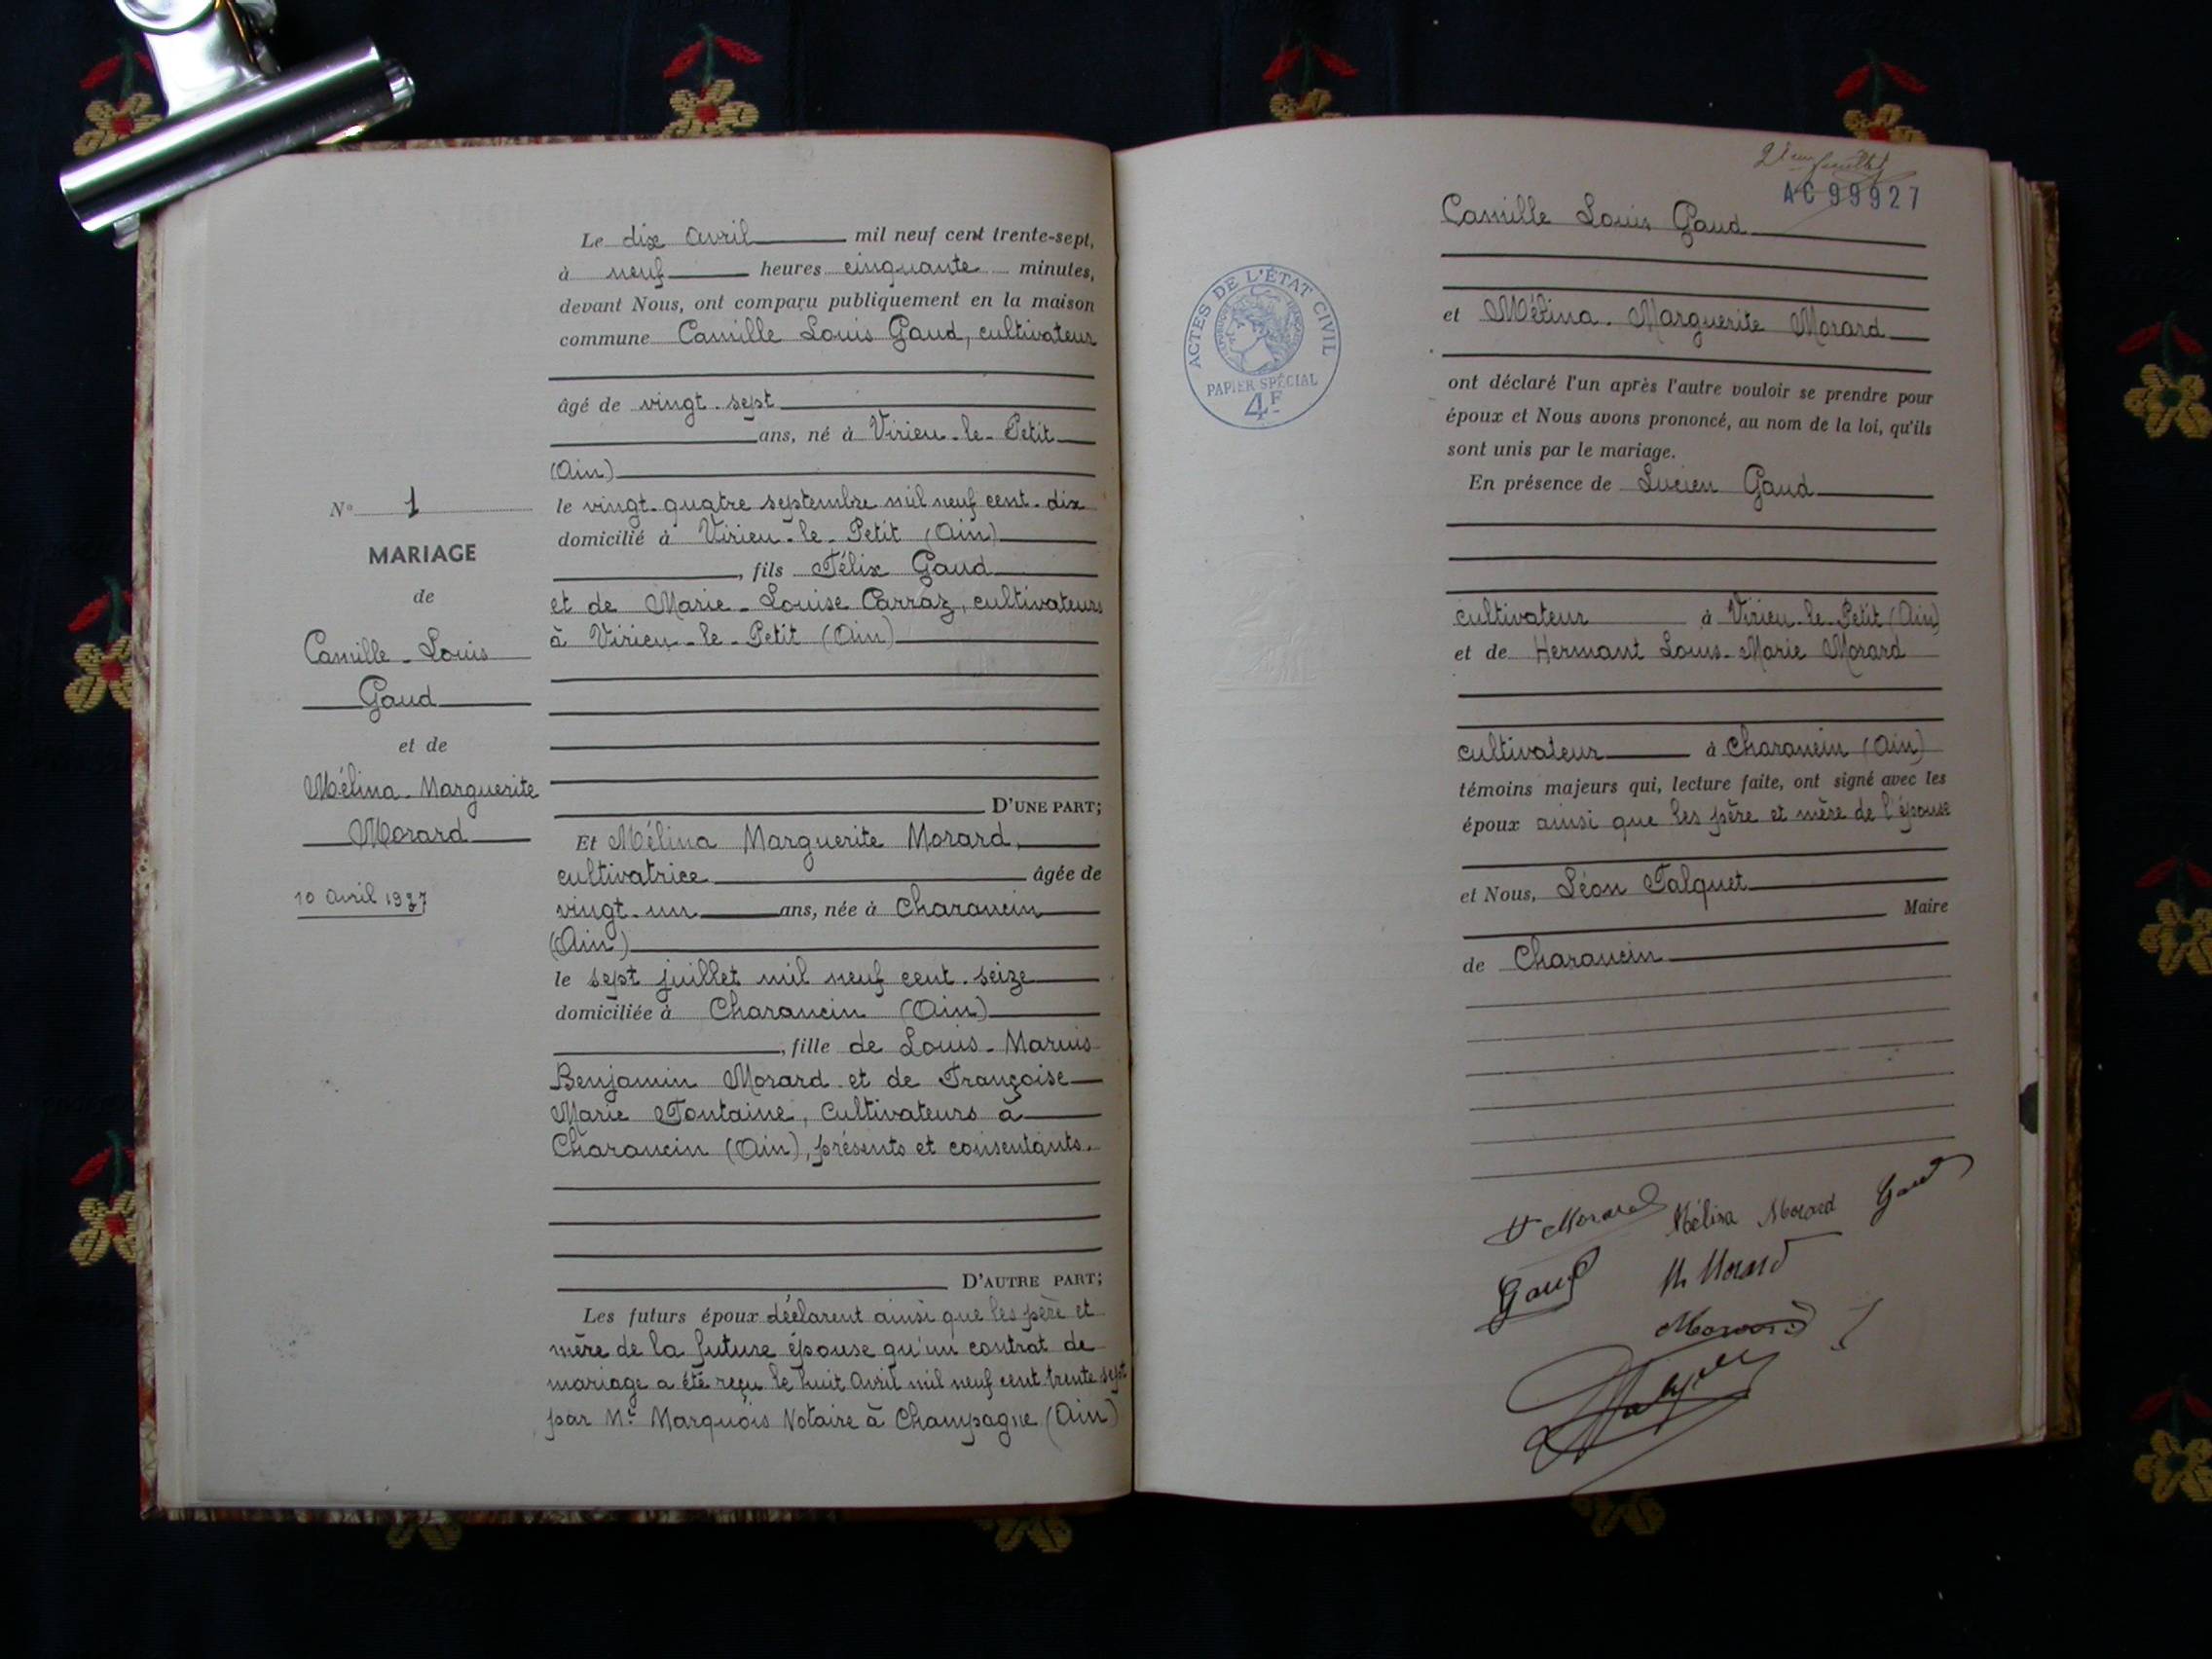 Le dix Avril mil neuf cent trente-sept,
à neuf heures cinquante minutes,
devant Nous, ont comparu publiquement en la maison
commune Camille Louis Gaud, cultivateur
âgé de vingt-sept
ans, né à Virieu-le-Petit
(Ain)
le vingt-quatre septembre mil neuf cent-dix
domicilié à Virieu-le-Petit (Ain)
, fils Félix Gaud
et de Marie-Louise Carraz, cultivateurs
à Virieu-le-Petit (Ain)
D'UNE PART;
N° 1
MARIAGE
de
Camille-Louis
Gaud
et de
Mélina-Marguerite
Morard
10 Avril 1937
Et Mélina Marguerite Morard,
cultivatrice âgée de
vingt-un ans, née à Charancin
(Ain)
le sept juillet mil neuf cent-seize
domiciliée à Charancin (Ain)
, fille de Louis-Marius
Benjamin Morard et de Françoise
Marie Fontaine, cultivateurs à
Charancin (Ain), présents et consentants.
D'AUTRE PART;
Les futurs époux déclarent ainsi que les père et
mère de la future épouse qu'un contrat de
mariage a été reçu le huit Avril mil neuf cent trente sept
par Me Marquois Notaire à Champagne (Ain)
2ième feuillet
AC 99927
ACTES DE L'ÉTAT CIVIL
RÉPUBLIQUE FRANÇAISE
PAPIER SPÉCIAL
4F
Camille Louis Gaud
et Mélina-Marguerite Morard
ont déclaré l'un après l'autre vouloir se prendre pour
époux et Nous avons prononcé, au nom de la loi, qu'ils
sont unis par le mariage.
En présence de Lucien Gaud
cultivateur à Virieu-le-Petit (Ain)
et de Hermant Louis-Marie Morard
cultivateur à Charancin (Ain)
témoins majeurs qui, lecture faite, ont signé avec les
époux ainsi que les père et mère de l'épouse
et Nous, Léon Falquet
Maire
de Charancin
Morard Mélina Morard Gaud
Gaud M Morard
Morard